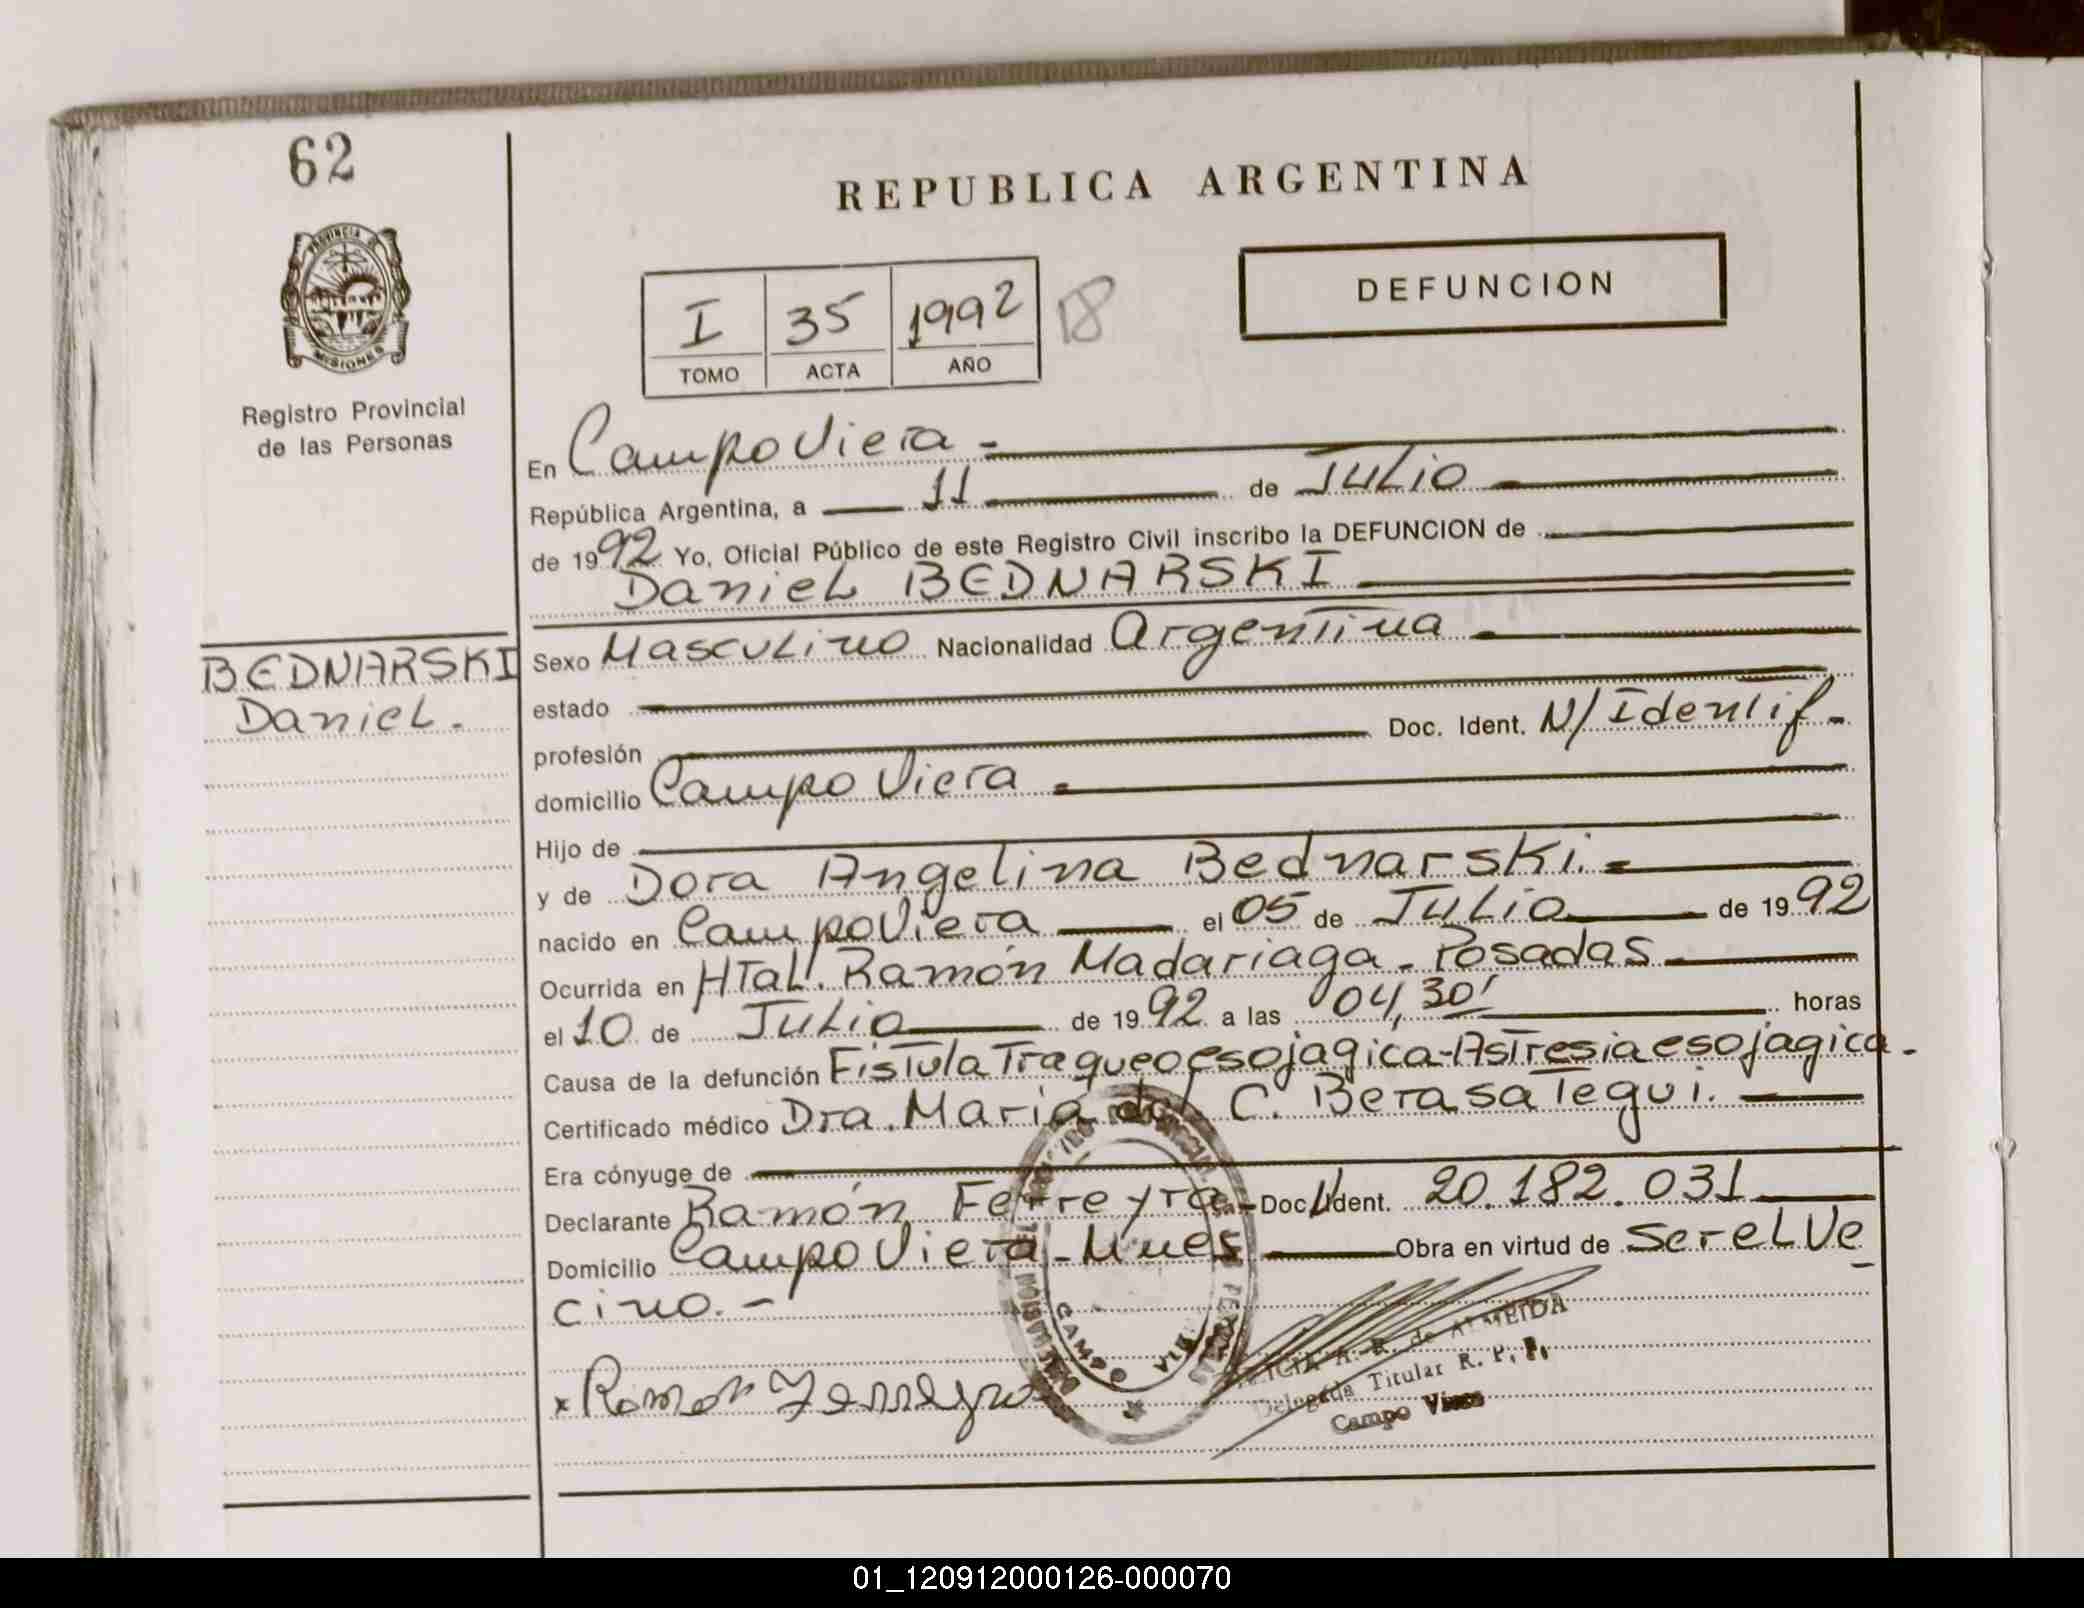 62
PROVINCIA DE
MISIONES
Registro Provincial
de las Personas
REPUBLICA ARGENTINA
I 35 1992 18
TOMO ACTA AÑO
DEFUNCION
En Campo Viera -
República Argentina, a 11 de Julio
de 1992 Yo, Oficial Público de este Registro Civil inscribo la DEFUNCION de
Daniel BEDNARSKI
BEDNARSKI
Daniel.
Sexo Masculino Nacionalidad Argentina
estado
profesión Doc. Ident. N/Identif-
domicilio Campo Viera
Hijo de
y de Dora Angelina Bednarski.
nacido en Campo Viera el 05 de Julio de 1992
Ocurrida en Htal. Ramón Madariaga - Posadas
el 10 de Julio de 1992 a las 04,30' horas
Causa de la defunción Fistula Traqueoesojagica-Astresia esojagica-
Certificado médico Dra. Maria del C. Berasategui.
Era cónyuge de
Declarante Ramón Ferreyra - Doc. Ident. 20.182.031
Domicilio Campo Viera - Mnes Obra en virtud de ser el Ve
cino.-
x Ramon Ferreyra
CAMPO
A. R. de ALMEIDA
Delegada Titular R. P. P.
Campo Viera
01_120912000126-000070